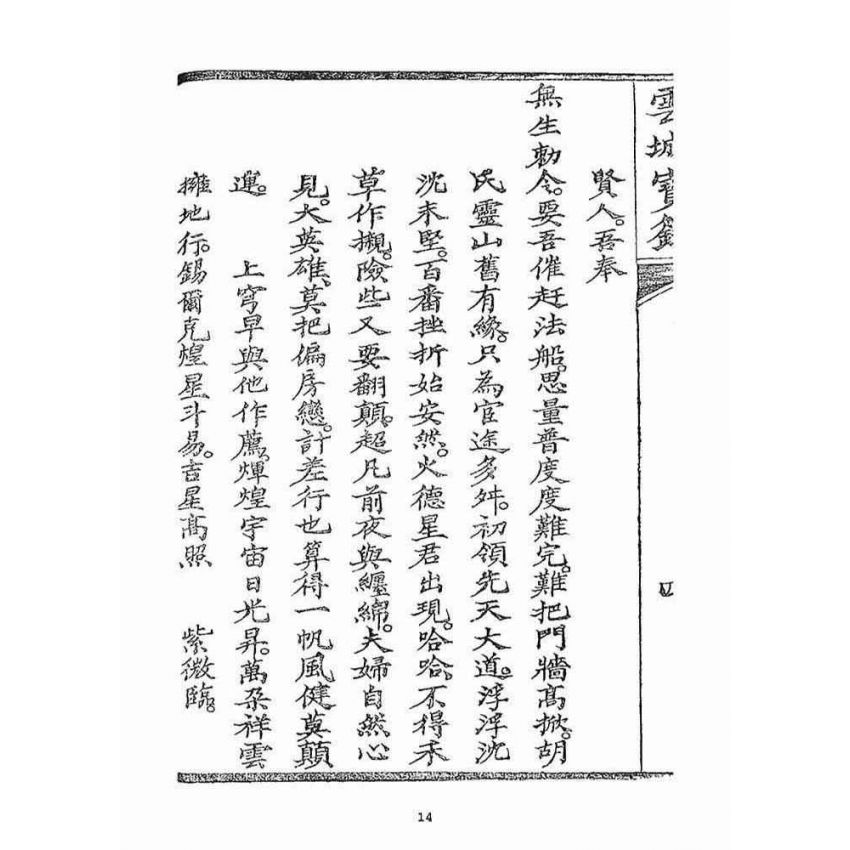 雲城寶籙
四
賢人。吾奉
無生勅令。要吾催赶法船。思量普度度難完。難把門牆高掀。胡
氏靈山舊有緣。只為官途多舛。初領先天大道。浮浮沈
沈未堅。百番挫折始安然。火德星君出現。哈哈。不得禾
草作攧。險些又要翻顛。超凡前夜與纏綿。夫婦自然心
見。大英雄、莫把偏房戀。計差行也算得一帆風健莫顛
運。　上穹早與他作薦。煇煌宇宙日光昇。萬朵祥雲
擁地行。錫爾克煌星斗易。吉星高照　紫微臨。
14